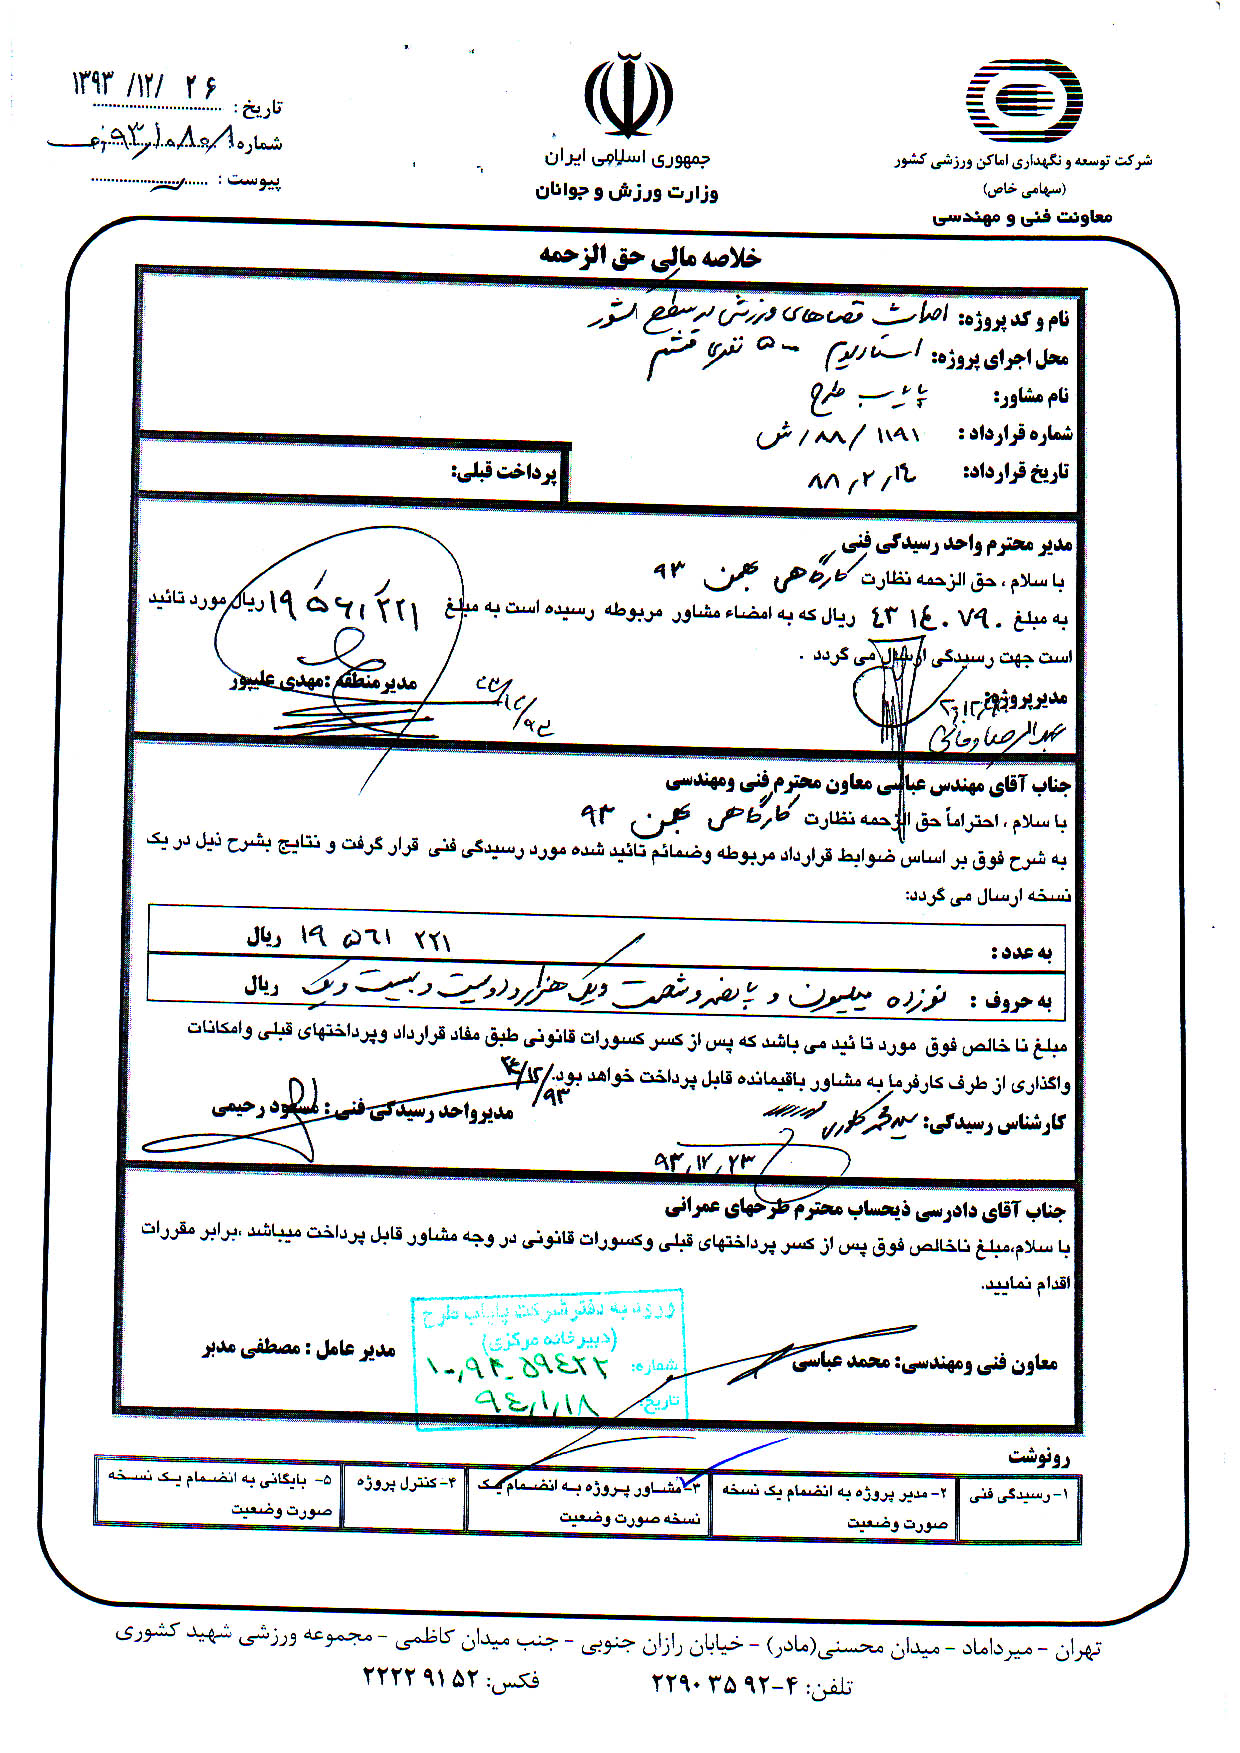 شرکت توسعه و نگهداری اماکن ورزشی کشور
(سهامی خاص)
معاونت فنی و مهندسی
جمهوری اسلامی ایران
وزارت ورزش و جوانان
تاریخ : ۱۳۹۳/۱۲/۲۶
شماره
پیوست :
خلاصه مالی حق الزحمه
نام و کد پروژه: احداث فضاهای ورزشی در سطح کشور
محل اجرای پروژه: استادیوم ۵۰۰ نفری قشم
نام مشاور: پایاب طرح
شماره قرارداد : ۱۱۹۱/۸۸/ش
تاریخ قرارداد: ۸۸,۲,۱۶
پرداخت قبلی:
مدیر محترم واحد رسیدگی فنی
با سلام ، حق الزحمه نظارت کارگاهی بهمن ۹۳
به مبلغ ۴۳۱۴۰۷۹۰ ریال که به امضاء مشاور مربوطه رسیده است به مبلغ ۱۹٬۵۶۱٬۲۲۱ ریال مورد تائید
است جهت رسیدگی ارسال می گردد .
مدیرپروژه:
مدیرمنطقه :مهدی علیپور
جناب آقای مهندس عباسی معاون محترم فنی ومهندسی
با سلام ، احتراماً حق الزحمه نظارت کارگاهی بهمن ۹۳
به شرح فوق بر اساس ضوابط قرارداد مربوطه وضمائم تائید شده مورد رسیدگی فنی قرار گرفت و نتایج بشرح ذیل در یک
نسخه ارسال می گردد:
به عدد : ۱۹ ۵۶۱ ۲۲۱ ریال
به حروف : نوزده میلیون و پانصد و شصت ویک هزار و دویست و بیست و یک ریال
مبلغ نا خالص فوق مورد تا ئید می باشد که پس از کسر کسورات قانونی طبق مفاد قرارداد وپرداختهای قبلی وامکانات
واگذاری از طرف کارفرما به مشاور باقیمانده قابل پرداخت خواهد بود.
کارشناس رسیدگی:
مدیرواحد رسیدگی فنی : مسعود رحیمی
۹۳,۱۲,۲۳
جناب آقای دادرسی ذیحساب محترم طرحهای عمرانی
با سلام،مبلغ ناخالص فوق پس از کسر پرداختهای قبلی وکسورات قانونی در وجه مشاور قابل پرداخت میباشد ،برابر مقررات
اقدام نمایید.
معاون فنی ومهندسی: محمد عباسی
مدیر عامل : مصطفی مدبر
ورود به دفتر شرکت پایاب طرح
(دبیرخانه مرکزی)
شماره: ۱۰,۹۳-۵۹۴۲۲
تاریخ: ۹۴,۱,۱۸
رونوشت
۱- رسیدگی فنی
۲- مدیر پروژه به انضمام یک نسخه
صورت وضعیت
۳-مشاور پروژه به انضمام یک
نسخه صورت وضعیت
۴-کنترل پروژه
۵- بایگانی به انضمام یک نسخه
صورت وضعیت
تهران – میرداماد – میدان محسنی(مادر) – خیابان رازان جنوبی – جنب میدان کاظمی – مجموعه ورزشی شهید کشوری
تلفن: ۴-۲۲۹۰۳۵۹۲ فکس: ۲۲۲۲۹۱۵۲